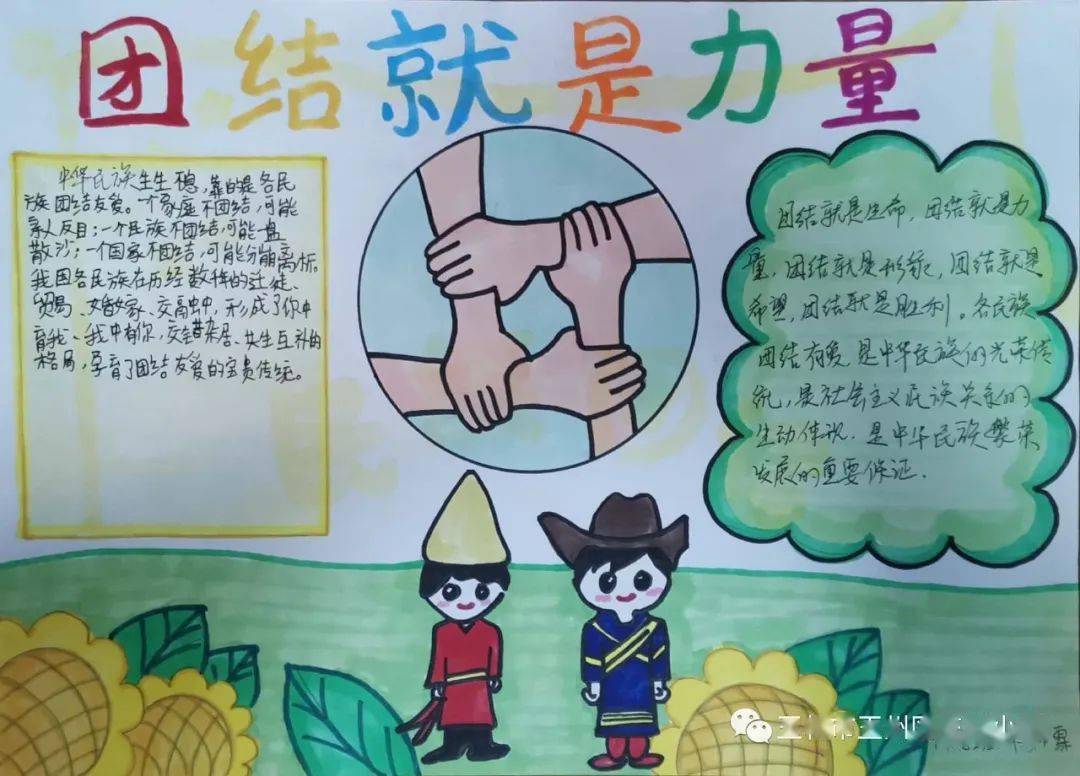 团结就是力量
中华民族生生不息,靠的是各民
族团结友爱。一个家庭不团结,可能
亲人反目;一个民族不团结,可能一盘
散沙;一个国家不团结,可能分崩离析。
我国各民族在历经数年的迁徙、
贸易、婚嫁、交流中,形成了你中
有我、我中有你,交错杂居、共生互补的
格局,孕育了团结友爱的宝贵传统。
团结就是生命,团结就是力
量,团结就是形象,团结就是
希望,团结就是胜利。各民族
团结有爱是中华民族的光荣传
统,是社会主义民族关系的
生动体现.是中华民族繁荣
发展的重要保证.